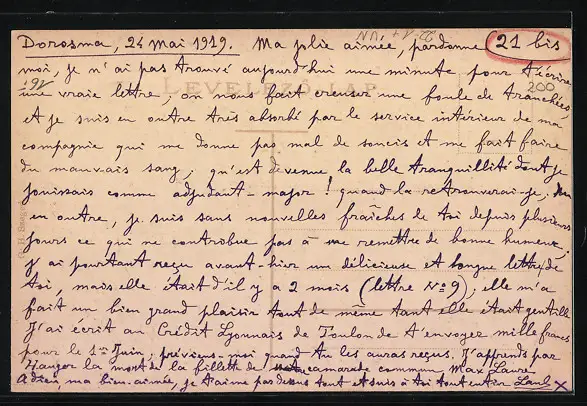 Dorosma, 24 mai 1919. Ma jolie aimée, pardonne 21 bis
moi, je n'ai pas trouvé aujourd'hui une minute pour t'écrire
une vraie lettre, on nous fait creuser une foule de tranchées,
200
et je suis en outre très absorbé par le service intérieur de ma
LEVELEZŐLAP
compagnie qui me donne pas mal de soucis et me fait faire
du mauvais sang, qu'est devenue la belle tranquillité dont je
jouissais comme adjudant-major ! quand la retrouverai-je,
en outre, je suis sans nouvelles fraîches de toi depuis plusieurs
jours ce qui ne contribue pas à me remettre de bonne humeur,
j'ai pourtant reçu avant-hier une délicieuse et longue lettre de
toi, mais elle était d'il y a 2 mois (lettre No 9); elle m'a
fait un bien grand plaisir tout de même tant elle était gentille
J'ai écrit au Crédit Lyonnais de Toulon de t'envoyer mille francs
pour le 1er Juin, préviens-moi quand tu les auras reçus. J'apprends par
Hauger la mort de la fillette de camarade commun Max Laure
Adieu, ma bien-aimée, je t'aime par dessus tout et suis à toi tout entier